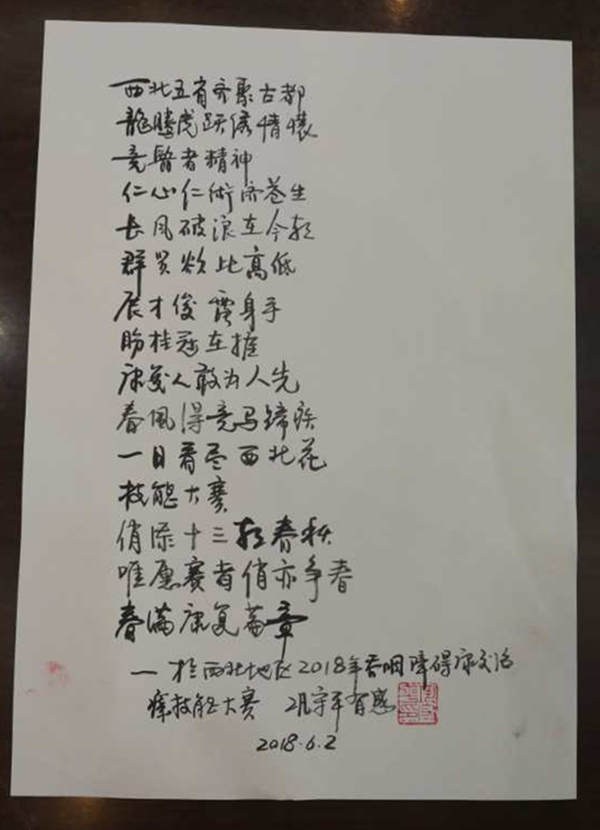 西北五省齐聚古都
龍騰虎跃倾情懷
竞醫者精神
仁心仁術济苍生
长风破浪在今朝
群贤欲比高低
展才俊 露身手
盼桂冠在握
康复人敢为人先
春风得意马蹄疾
一日看尽西北花
技能大赛
俏添十三轮春秋
唯愿赛者俏亦争春
春满康复篇章
— 于西北地区2018年吞咽障碍康复治
疗技能大赛 巩守平有感
2018.6.2